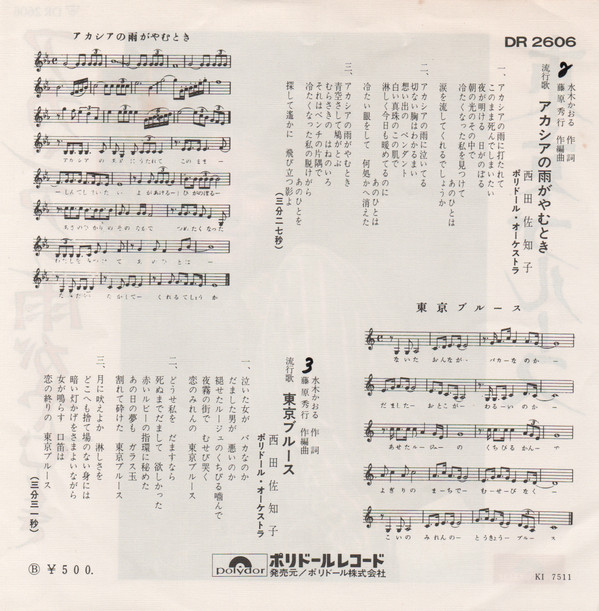 アカシアの雨がやむとき
DR 2606
2
水木かおる 作 詞
藤原秀行 作編曲
流行歌 アカシアの雨がやむとき
西田佐知子
ポリドール・オーケストラ
一、アカシアの雨に打たれて
このまま死んでしまいたい
夜が明ける 日がのぼる
朝の光のその中で
冷たくなった私を見つけて
あのひとは
涙を流してくれるでしょうか
二、アカシアの雨に泣いてる
切ない胸はわかるまい
想い出のペンダント
白い真珠のこの肌で
淋しく今日も暖めてるのに
あのひとは
冷たい眼をして 何処かへ消えた
三、アカシアの雨がやむとき
青空さして鳩がとぶ
むらさきの はねのいろ
それはベンチの片隅で
冷たくなった私の脱けがら
あのひとを
探して遙かに 飛び立つ影よ
(三分二七秒)
アカシアの あめにうたれて このまま一
東京ブルース
ないた おんなが一 バカ一なのか一
だました一 おとこが一 わる一いのか一
あせたルージュ一の くちびるかん一で
よぎりの まち一で むせ一びなく一
こいの みれんの一 とうきょう一 ブルース
3
水木かおる 作 詞
藤原秀行 作編曲
流行歌 東京ブルース
西田佐知子
ポリドール・オーケストラ
一、泣いた女が バカなのか
だました男が 悪いのか
褪せたルージュのくちびる噛んで
夜霧の街で むせび哭く
恋のみれんの 東京ブルース
二、どうせ私を だますなら
死ぬまでだまして 欲しかった
赤いルビーの指環に秘めた
あの日の夢も ガラス玉
割れて砕けた 東京ブルース
三、月に吠えよか 淋しさを
どこへも捨て場のない身には
暗い灯かげをさまよいながら
女が鳴らす 口笛は
恋の終りの 東京ブルース
(三分三一秒)
Ⓑ ¥500.
polydor
ポリドールレコード
発売元/ポリドール株式会社
KI 7511